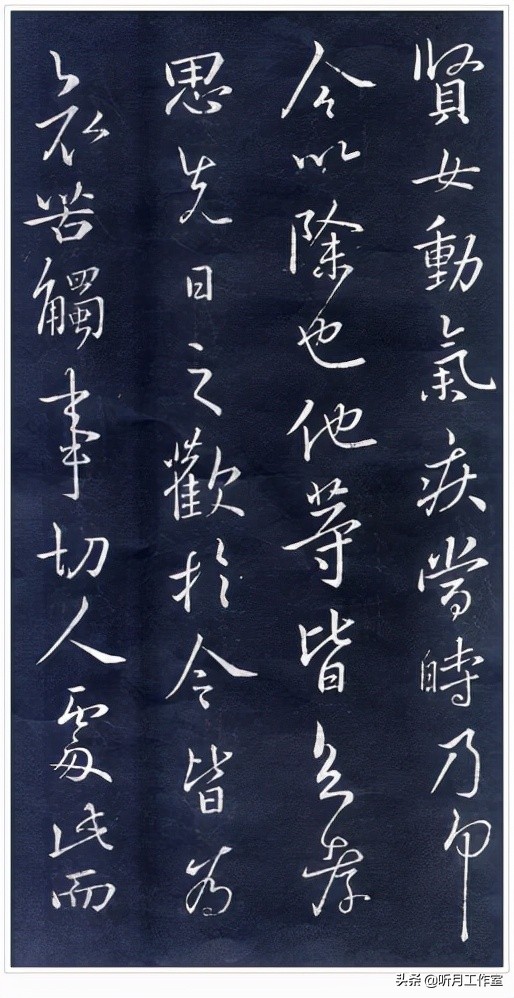 賢女動氣疾當時乃
今以除也他等皆孝
思先日之歡於今皆為
哀苦觸事切人處此而
头条 @听月工作室